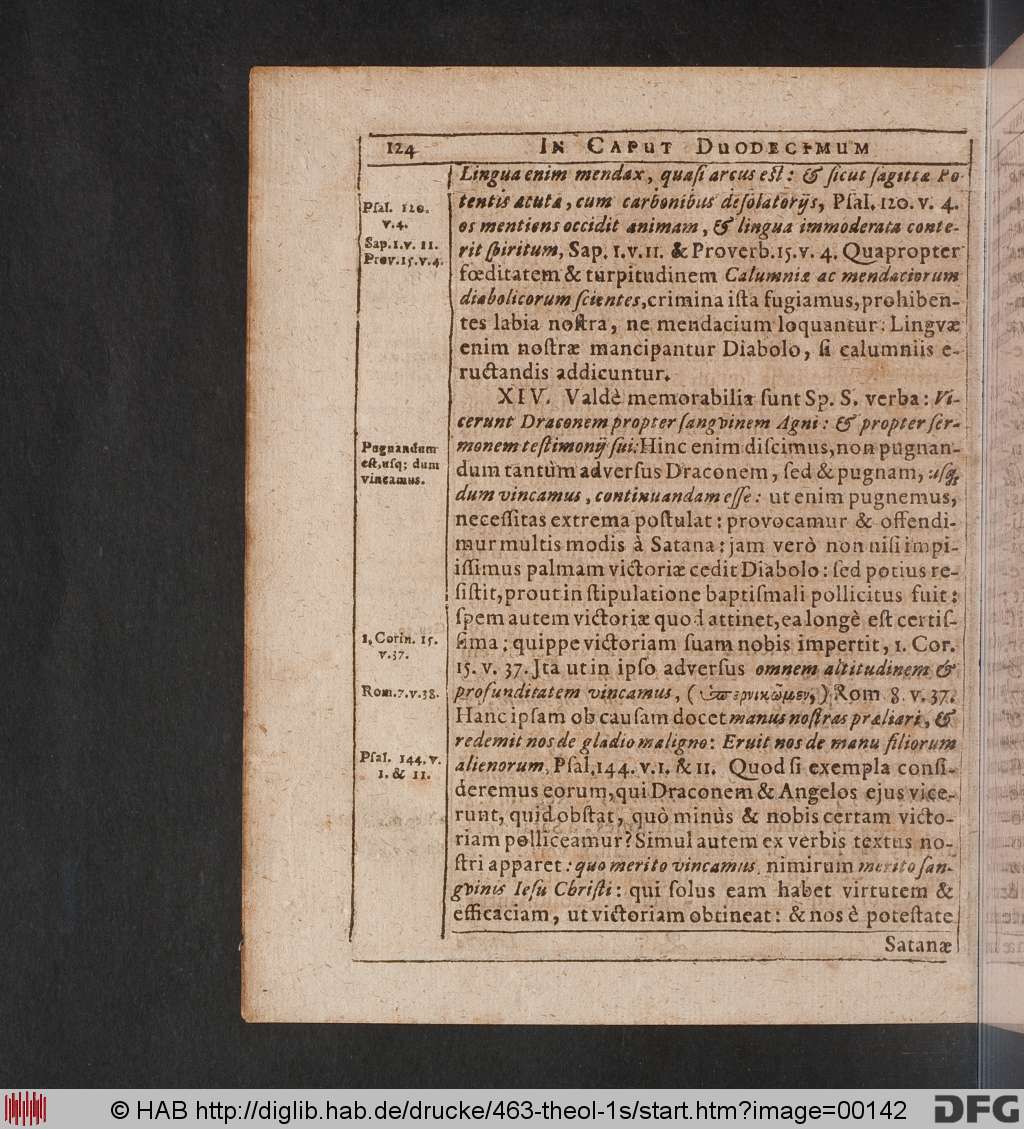 124 IN CAPUT DUODECIMUM
Lingua enim mendax, quaſi arcus eſt: & ſicut ſagitta Po-
tentis acuta, cum carbonibus deſolatorijs, Pſal. 120. v. 4.
os mentiens occidit animam, & lingua immoderata conte-
rit ſpiritum, Sap. 1. v. 11. & Proverb. 15. v. 4. Quapropter
fœditatem & turpitudinem Calumniæ ac mendaciorum
diabolicorum ſcientes, crimina iſta fugiamus, prohiben-
tes labia noſtra, ne mendacium loquantur: Lingvæ
enim noſtræ mancipantur Diabolo, ſi calumniis e-
ructandis addicuntur.
XIV. Valdè memorabilia ſunt Sp. S. verba: Vi-
cerunt Draconem propter ſangvinem Agni: & propter ſer-
monem teſtimonij ſui: Hinc enim diſcimus, non pugnan-
dum tantùm adverſus Draconem, ſed & pugnam, uſq;
dum vincamus, continuandam eſſe: ut enim pugnemus,
neceſſitas extrema poſtulat: provocamur & offendi-
mur multis modis à Satana: jam verò non niſi impi-
iſſimus palmam victoriæ cedit Diabolo: ſed potius re-
ſiſtit, prout in ſtipulatione baptiſmali pollicitus fuit:
ſpem autem victoriæ quod attinet, ea longè eſt certiſ-
ſima; quippe victoriam ſuam nobis impertit, 1. Cor.
15. v. 37. Jta ut in ipſo adverſus omnem altitudinem &
profunditatem vincamus, (ὑπερνικῶμεν,) Rom 8. v. 37.
Hanc ipſam ob cauſam docet manus noſtras præliari, &
redemit nos de gladio maligno: Eruit nos de manu filiorum
alienorum, Pſal. 144. v. 1. & 11. Quod ſi exempla conſi-
deremus eorum, qui Draconem & Angelos ejus vice-
runt, quid obſtat, quò minùs & nobis certam victo-
riam polliceamur? Simul autem ex verbis textus no-
ſtri apparet: quo merito vincamus, nimirum merito ſan-
gvinis Ieſu Chriſti: qui ſolus eam habet virtutem &
efficaciam, ut victoriam obtineat: & nos è poteſtate
Satanæ
Pſal. 120.
v. 4.
Sap. 1. v. 11.
Prov. 15. v. 4.
Pugnandum
eſt, uſq; dum
vincamus.
1. Corin. 15.
v. 37.
Rom. 7. v. 38.
Pſal. 144. v.
1. & 11.
© HAB http://diglib.hab.de/drucke/463-theol-1s/start.htm?image=00142
DFG